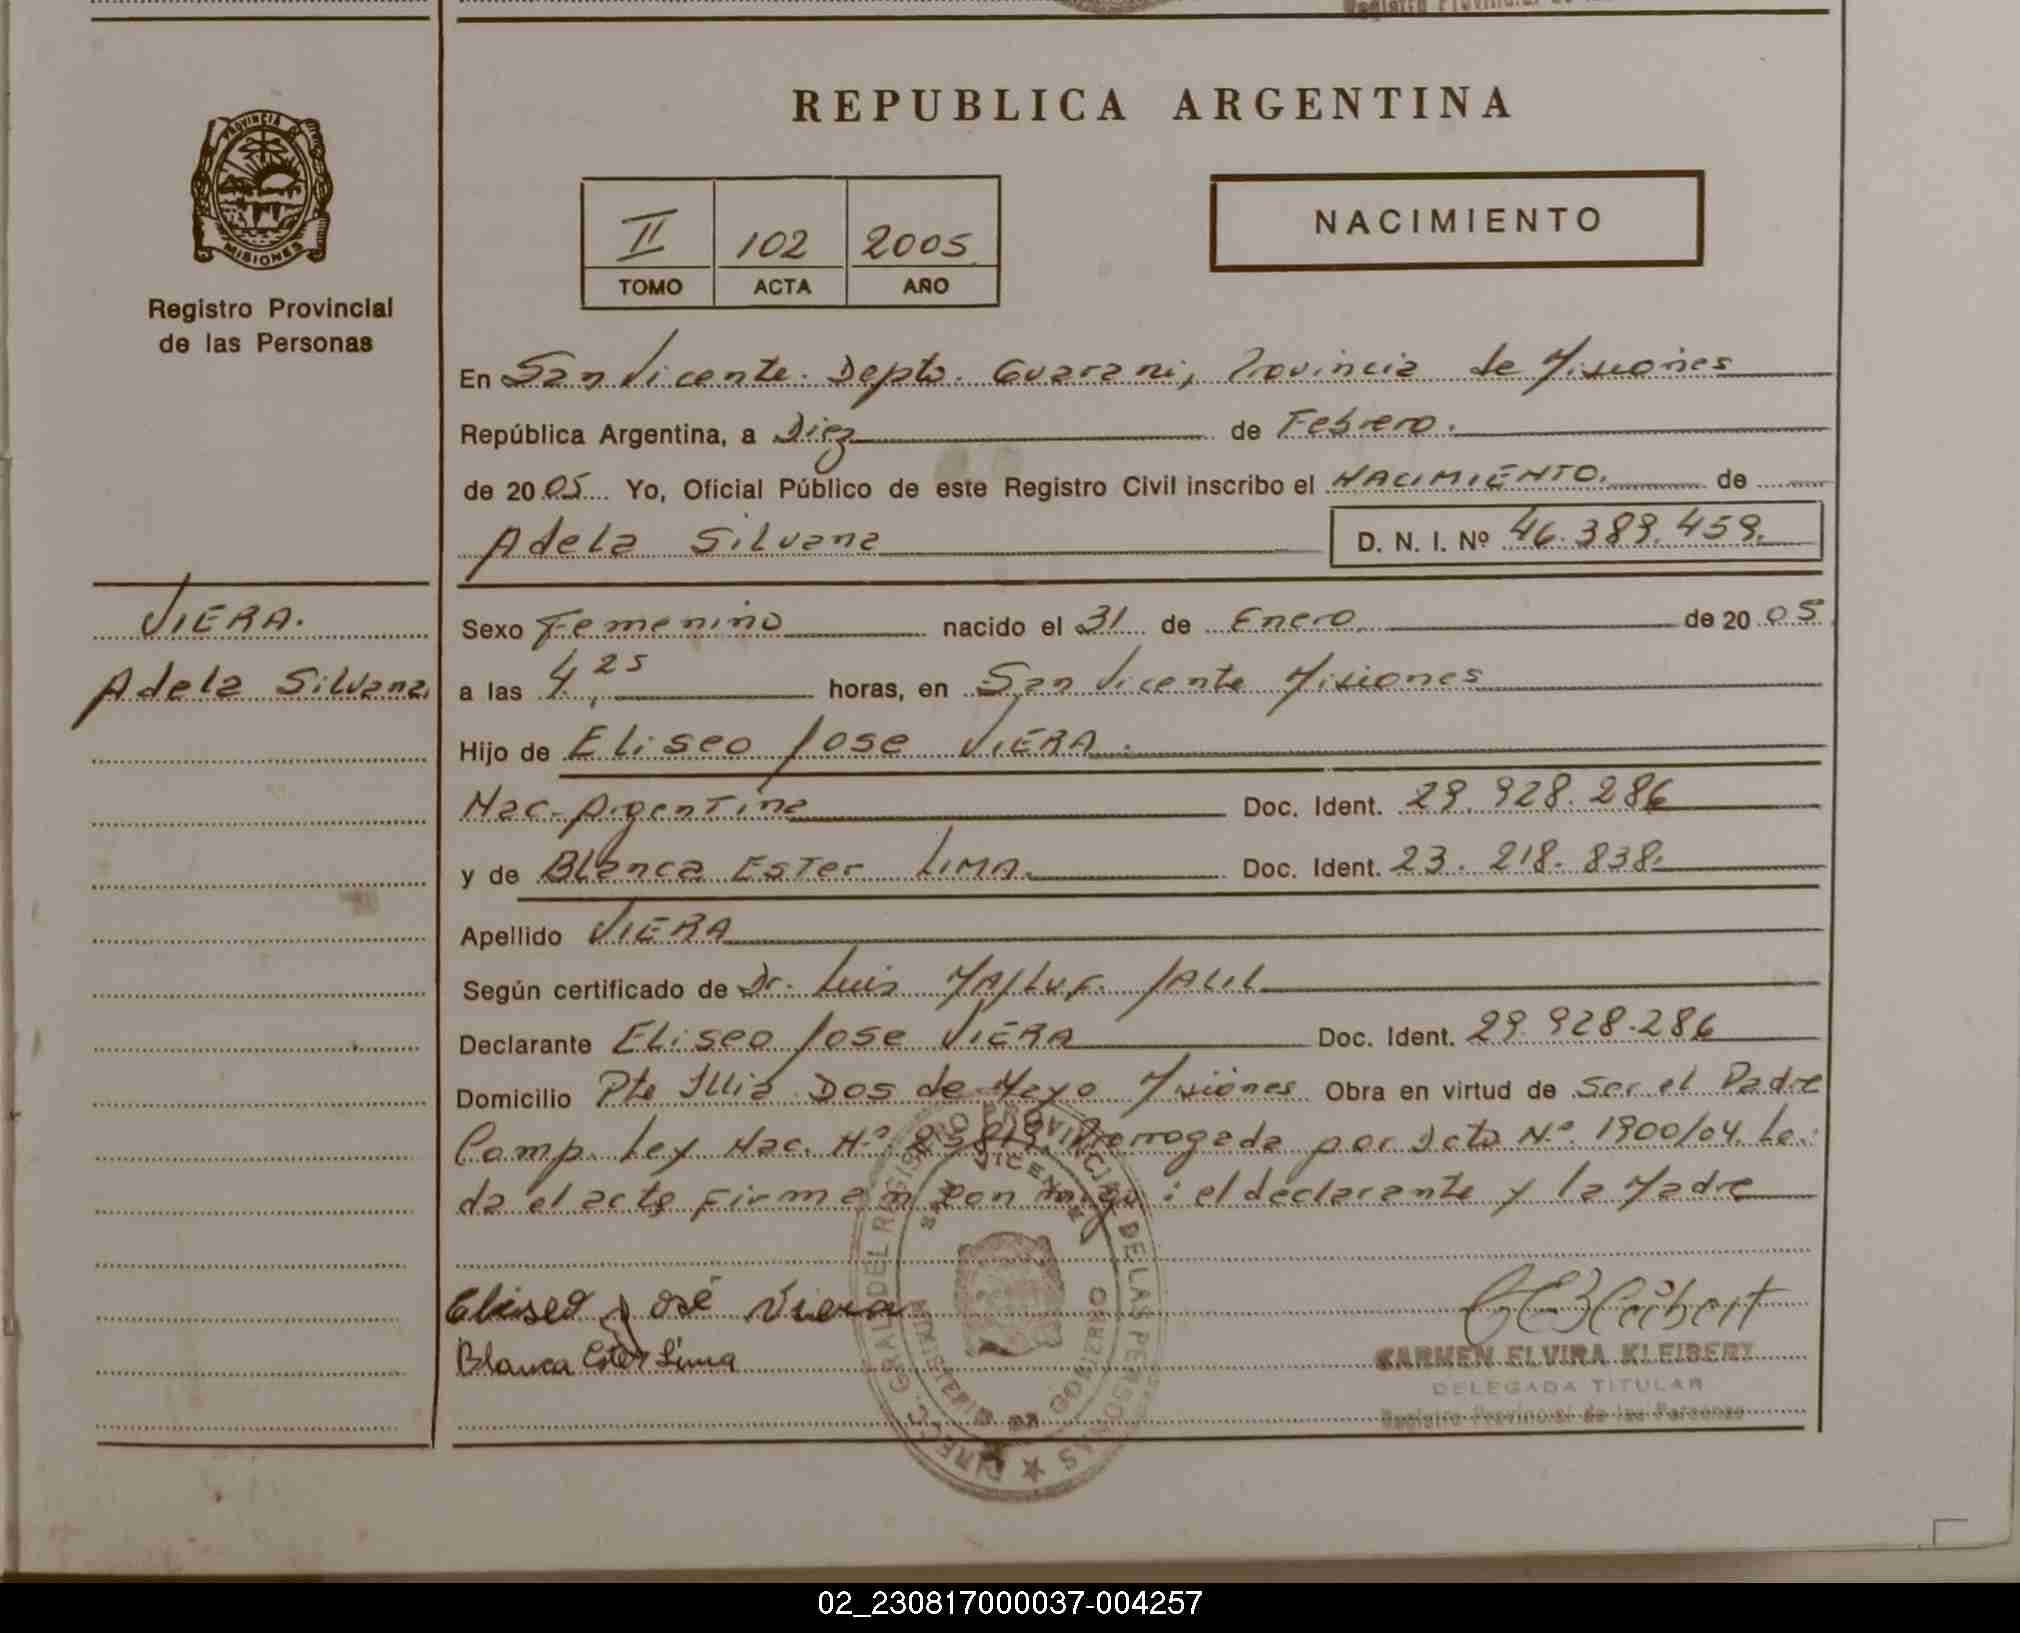 REPUBLICA ARGENTINA
PROVINCIA DE
MISIONES
Registro Provincial
de las Personas
II 102 2005
TOMO ACTA AÑO
NACIMIENTO
En San Vicente. Depto. Guarani, Provincia de Misiones
República Argentina, a Diez de Febrero.
de 2005 Yo, Oficial Público de este Registro Civil inscribo el NACIMIENTO. de
Adela Silvana D. N. I. Nº 46.389.459.
VIERA.
Adela Silvana.
Sexo Femenino nacido el 31 de Enero de 2005
a las 4,25 horas, en San Vicente Misiones
Hijo de Eliseo Jose VIERA.
Nac. Argentina Doc. Ident. 29.928.286
y de Blanca Ester LIMA. Doc. Ident. 23.218.838.
Apellido VIERA
Según certificado de Dr. Luis JALIL
Declarante Eliseo Jose VIERA Doc. Ident. 29.928.286
Domicilio Pte Illia Dos de Mayo Misiones Obra en virtud de ser el Padre
Comp. Ley Nac. Nº Prorrogada por Dcto Nº 1900/04. Lei
da el acta firman con migo: el declarante y la Madre
Eliseo José Viera
Blanca Ester Lima
CARMEN ELVIRA KLEIBERT
DELEGADA TITULAR
Registro Provincial de las Personas
DIRECC. GRAL DEL REGISTRO PROVINCIAL DE LAS PERSONAS
SAN VICENTE
02_230817000037-004257